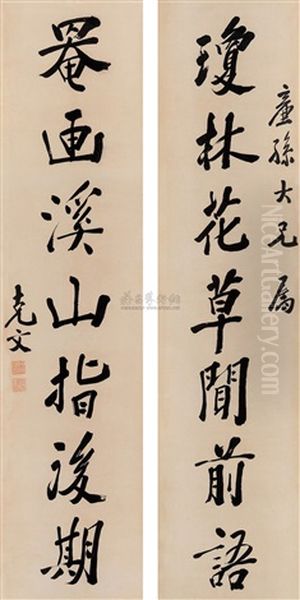 孫大兄屬
瓊林花草聞前語
罨画溪山指後期
克文